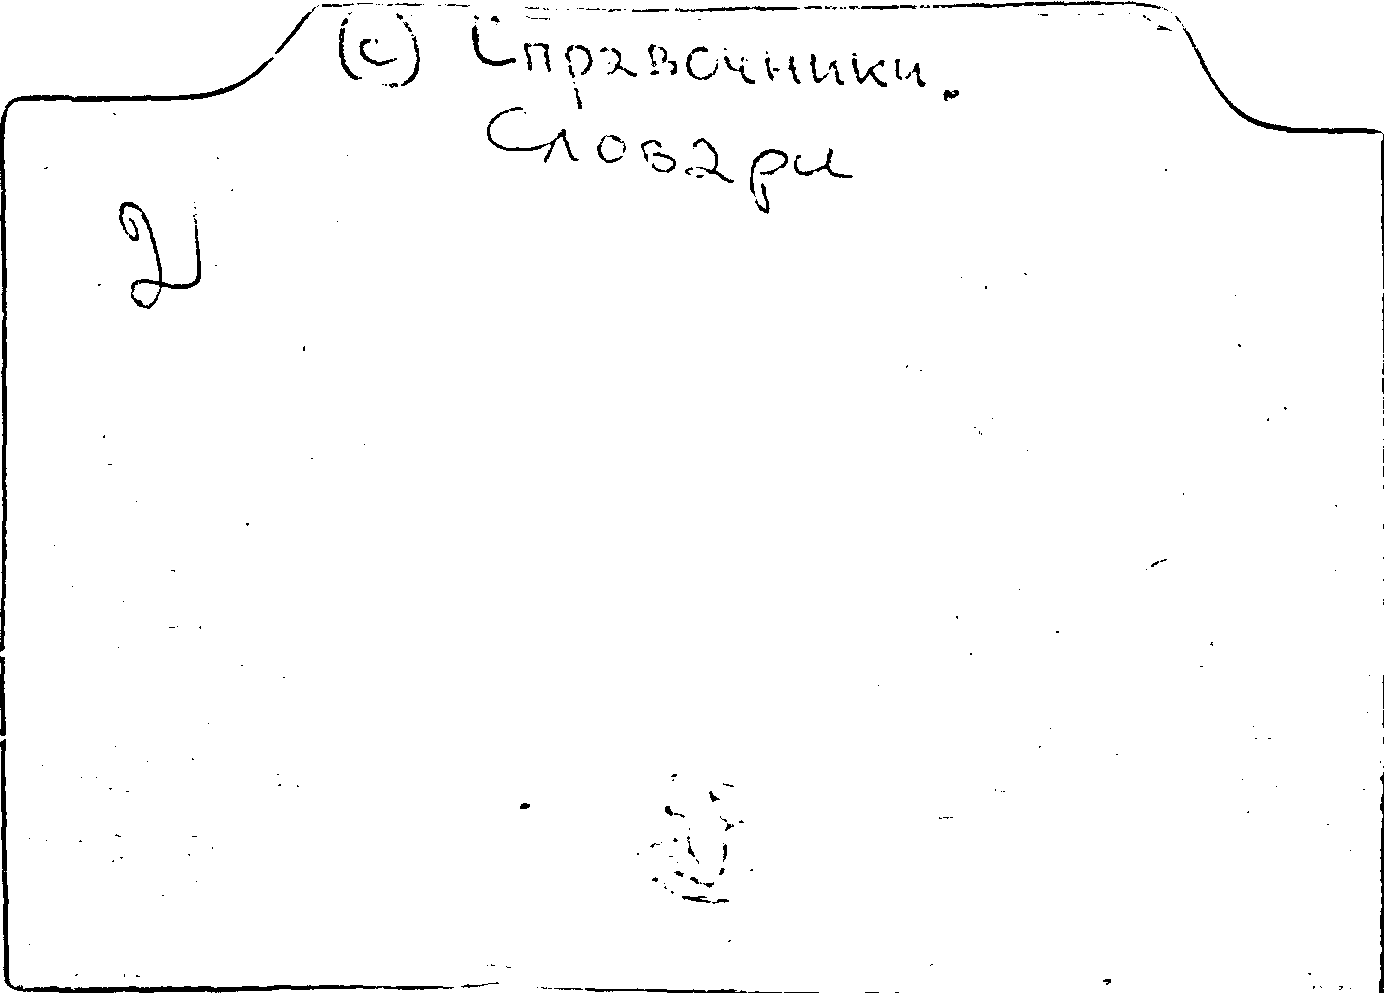 (с) Справочники.
Словари